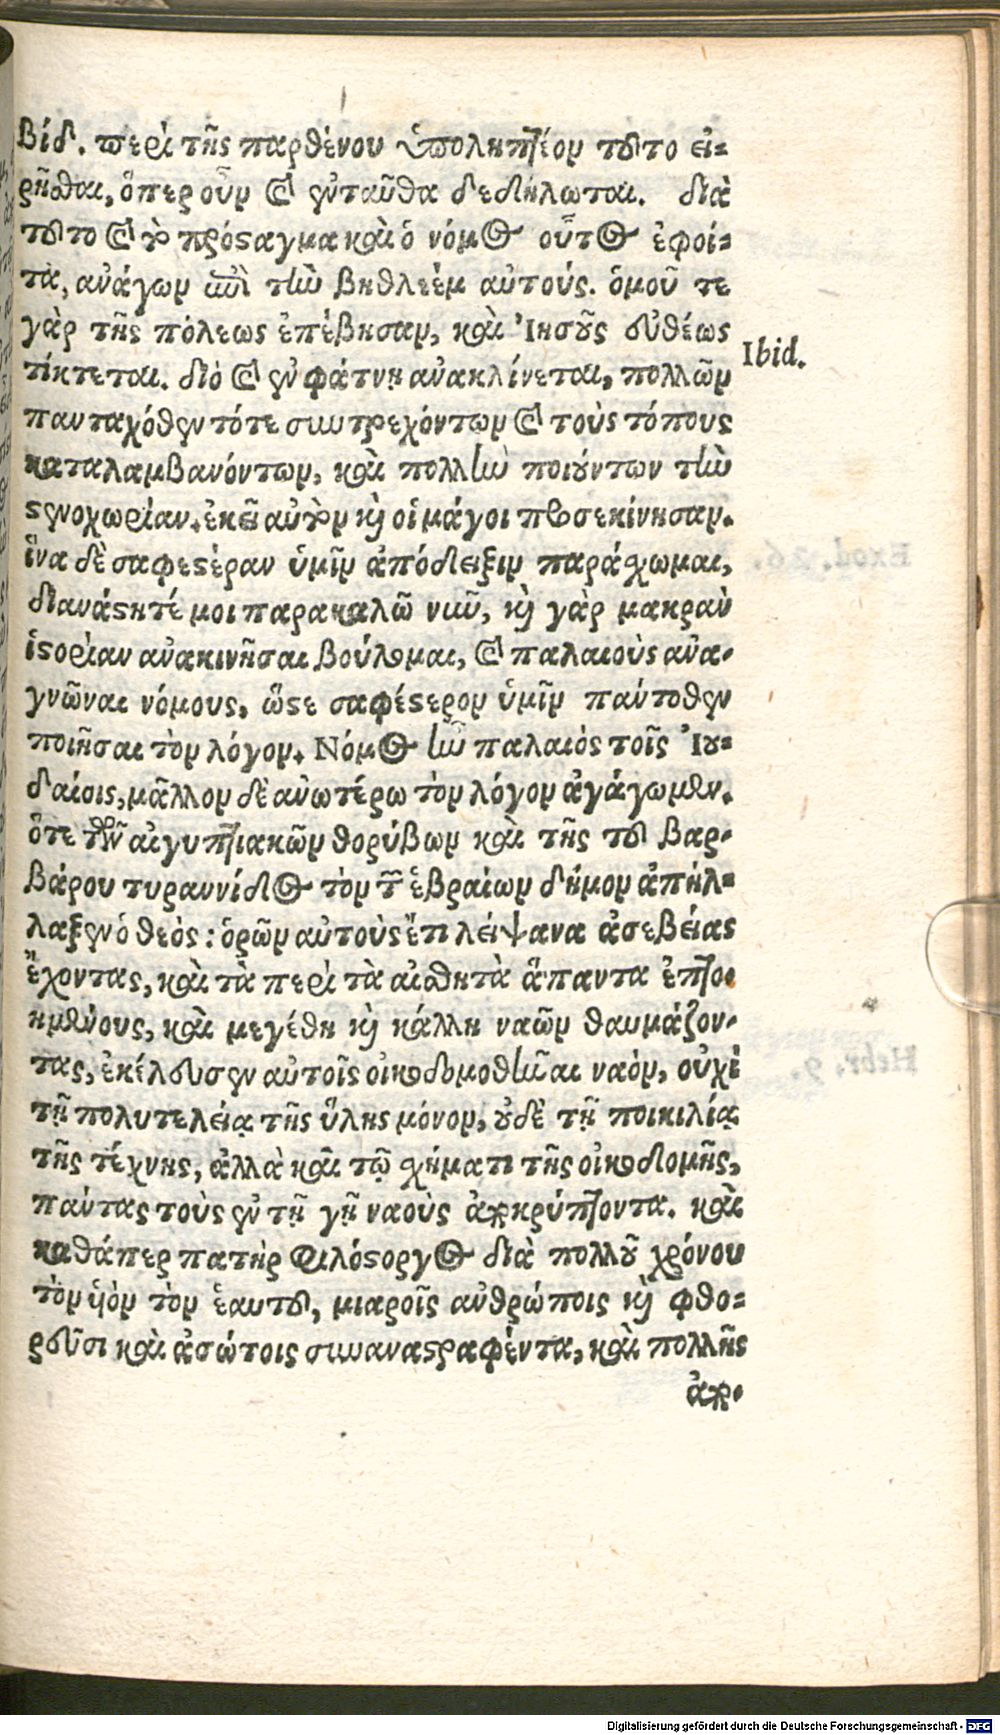 βίδ. περὶ τῆς παρθένου ὑποληπτέον τοῦτο εἰ-
ρῆσθαι, ὅπερ οὖν καὶ ἐνταῦθα δεδήλωται. διὰ
τοῦτο καὶ τὸ πρόσαγμα καὶ ὁ νόμος οὗτος ἐφοί-
τα, ἀνάγων ἐπὶ τὴν βηθλεὲμ αὐτούς. ὁμοῦ τε
γὰρ τῆς πόλεως ἐπέβησαν, καὶ Ἰησοῦς εὐθέως
τίκτεται. διὸ καὶ ἐν φάτνῃ ἀνακλίνεται, πολλῶν
πανταχόθεν τότε συντρεχόντων καὶ τοὺς τόπους
καταλαμβανόντων, καὶ πολλὴν ποιούντων τὴν
στενοχωρίαν. ἐκεῖ αὐτὸν καὶ οἱ μάγοι προσεκίνησαν.
ἵνα δὲ σαφεστέραν ὑμῖν ἀπόδειξιν παράσχωμαι,
διανάστητέ μοι παρακαλῶ νῦν, καὶ γὰρ μακρὰν
ἱστορίαν ἀνακινῆσαι βούλομαι, καὶ παλαιοὺς ἀνα-
γνῶναι νόμους, ὥστε σαφέστερον ὑμῖν πάντοθεν
ποιῆσαι τὸν λόγον. Νόμος ἦν παλαιὸς τοῖς Ἰου-
δαίοις, μᾶλλον δὲ ἀνωτέρω τὸν λόγον ἀγάγωμεν.
ὅτε τῶν αἰγυπτιακῶν θορύβων καὶ τῆς τοῦ βαρ-
βάρου τυραννίδος τὸν τῶν ἑβραίων δήμον ἀπήλ-
λαξεν ὁ θεὸς: ὁρῶν αὐτοὺς ἔτι λείψανα ἀσεβείας
ἔχοντας, καὶ τὰ περὶ τὰ αἰσθητὰ ἅπαντα ἐπτο-
ημένους, καὶ μεγέθη καὶ κάλλη ναῶν θαυμάζον-
τας, ἐκέλευσεν αὐτοῖς οἰκοδομοθῆναι ναὸν, οὐχὶ
τῇ πολυτελείᾳ τῆς ὕλης μόνον, οὐδὲ τῇ ποικιλίᾳ
τῆς τέχνης, ἀλλὰ καὶ τῷ σχήματι τῆς οἰκοδομῆς,
πάντας τοὺς ἐν τῇ γῇ ναοὺς ἀποκρύπτοντα. καὶ
καθάπερ πατὴρ φιλόστοργος διὰ πολλοῦ χρόνου
τὸν υἱὸν τὸν ἑαυτοῦ, μιαροῖς ἀνθρώποις καὶ φθο-
ροῦσι καὶ ἀσώτοις συναναστραφέντα, καὶ πολλῆς
ἀπο-
Ibid.
Digitalisierung gefördert durch die Deutsche Forschungsgemeinschaft - DFG